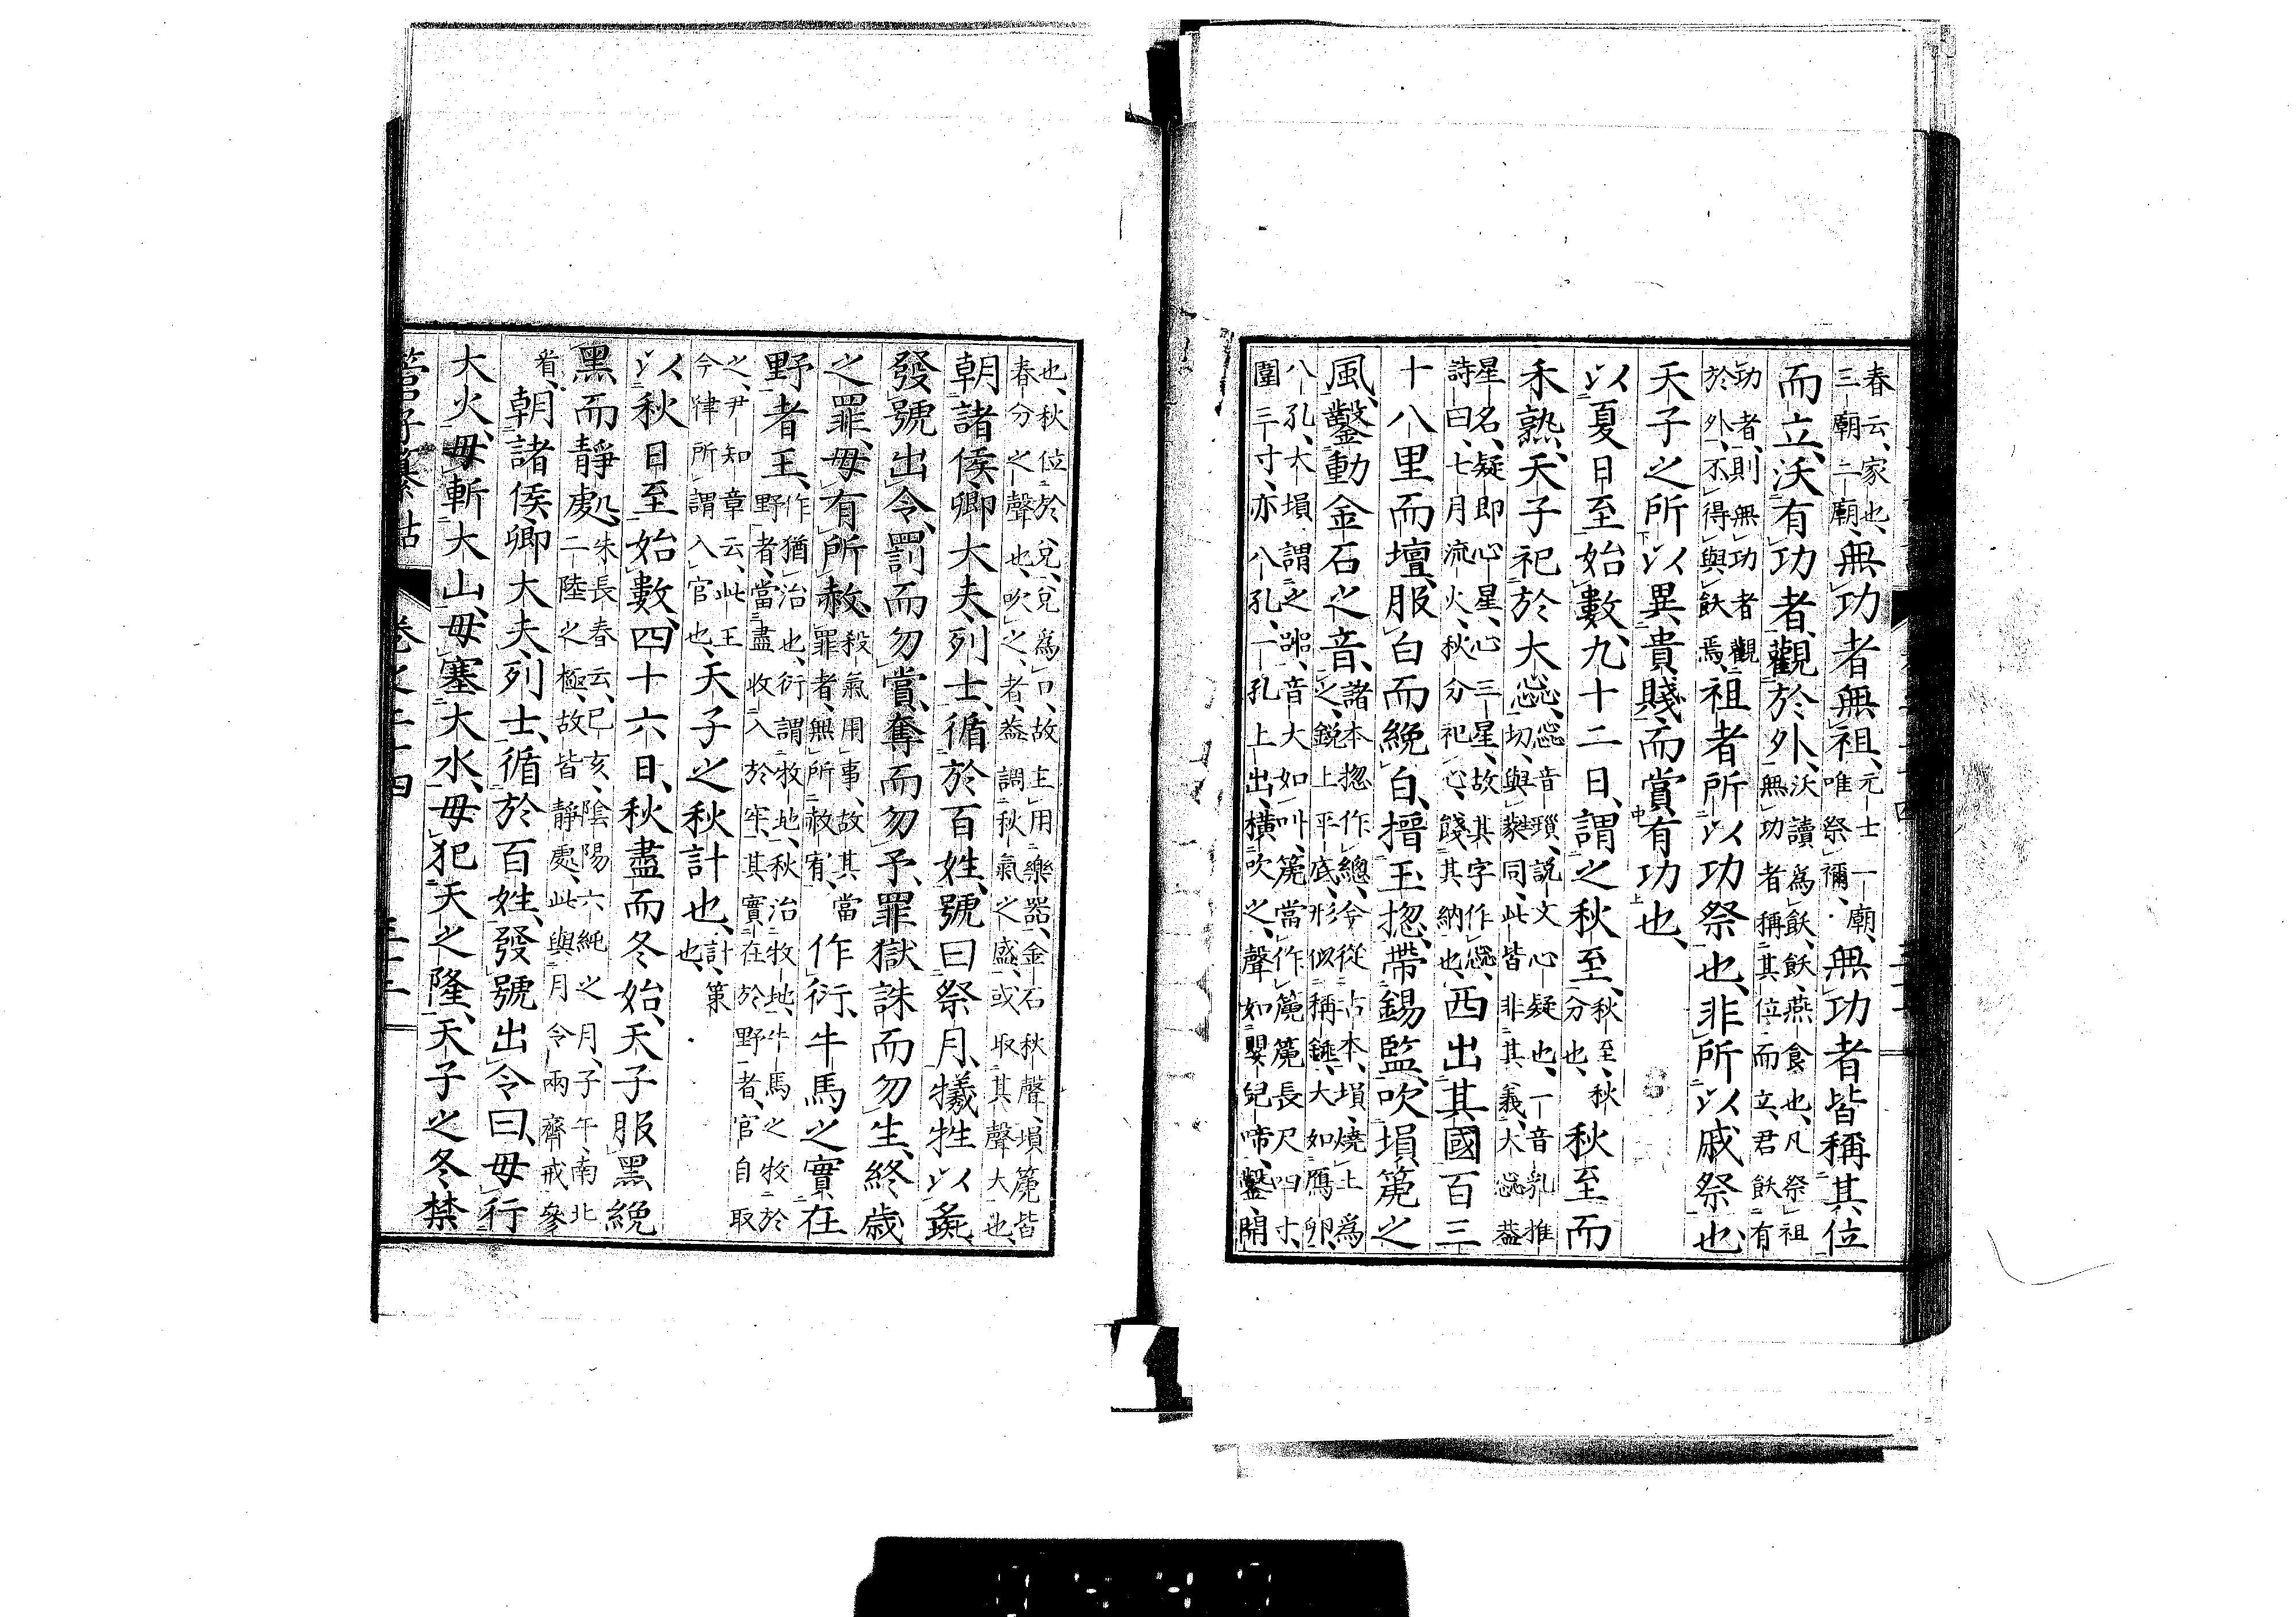 春云、家也、無功者無祖、元士一廟、無功者皆稱其位
三廟二廟、唯祭禰、
而立、沃有功者、觀於外、沃讀爲飫、飫燕食也、凡祭祖
無功者稱其位而立、君飫有
功者、則無功者觀
於外、不得與飫焉、祖者所以功祭也、非所以戚祭也、
天子之所以異貴賤、而賞有功也、
以夏日至始、數九十二日、謂之秋至、秋至、秋分也、秋至而
禾熟、天子祀於大惢、惢音瑣、説文心疑也、一音乳捶
切、與蘂同、此皆非其義、大惢蓋
星名、疑即心星、心三星、故其字作惢、
詩曰、七月流火、秋分祀心、餞其納也、西出其國百三
十八里而壇、服白而絻白、搢玉揔、帶錫監、吹塤箎之
風、鑿動金石之音、諸本揔作總、今從古本、塤、燒土爲
之、鋭上平底、形似稱錘、大如鴈卵、
八孔、大塤、謂之㗊、音大如叫、箎當作篪、篪長尺四寸、
圍三寸、亦八孔、一孔上出、橫吹之、聲如嬰兒啼、鑿、開
也、秋位於兌、兌爲口、故主用樂器、金石秋聲、塤箎皆
春分之聲也、吹之者、蓋調秋氣之盛、或取其聲大也、
朝諸侯卿大夫列士、循於百姓、號曰祭月、犧牲以彘、
發號出令、罰而勿賞、奪而勿予、罪獄誅而勿生、終歲
之罪、毋有所赦、殺氣用事、故其當
罪者、無所赦宥、作衍、牛馬之實在
野者王、作猶治也、衍謂牧地、秋治牧地、牛馬之牧於
野者、當盡收入於牢、其實在於野者、官自取
之、尹知章云、此王
今律所謂入官也、天子之秋計也、計、策也、
以秋日至始、數四十六日、秋盡而冬始、天子服黑絻
黑而靜處、朱長春云、巳亥、陰陽六純之月、子午、南北
二陸之極、故皆靜處、此與月令兩齊戒參
看、朝諸侯卿大夫列士、循於百姓、發號出令曰、毋行
大火、毋斬大山、毋塞大水、毋犯天之隆、天子之冬禁
管子纂詁 卷之二十四